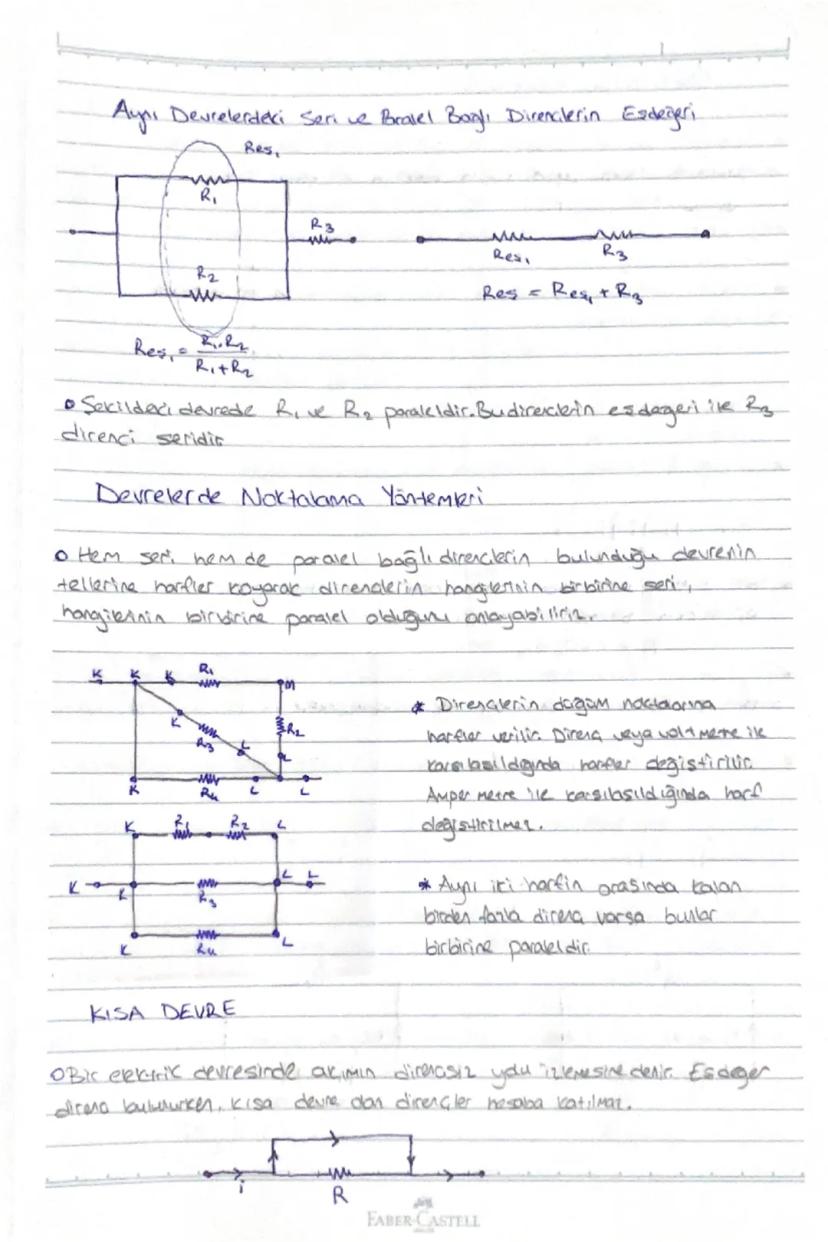 Aynı Devrelerdeki Seri ve Paralel Bağlı Dirençlerin Eşdeğeri
Reş₁
R₁
R₃
R₂
Reş₁ R₃
Reş = Reş₁ + R₃
Reş₁ = R₁.R₂
R₁+R₂
Şekildeki devrede R₁ ve R₂ paraleldir. Bu dirençlerin eşdeğeri ile R₃
direnci seridir
Devrelerde Noktalama Yöntemleri
Hem seri, hem de paralel bağlı dirençlerin bulunduğu devrenin
tellerine harfler koyarak dirençlerin hangilerinin birbirine seri,
hangilerinin birbirine paralel olduğunu anlayabiliriz.
K K K R₁ M
K R₃ L R₂ L
K R₄ L L
* Dirençlerin düğüm noktalarına
harfler verilir. Direnç veya voltmetre ile
karşılaşıldığında harfler değiştirilir.
Ampermetre ile karşılaşıldığında harf
değiştirilmez.
K R₁ R₂ L
K K R₃ L L
K R₄ L
* Aynı iki harfin arasında kalan
birden fazla direnç varsa bunlar
birbirine paraleldir.
KISA DEVRE
Bir elektrik devresinde akımın dirençsiz yolu izlemesine denir. Eşdeğer
direnç bulunurken, kısa devre olan dirençler hesaba katılmaz.
i R
FABER-CASTELL